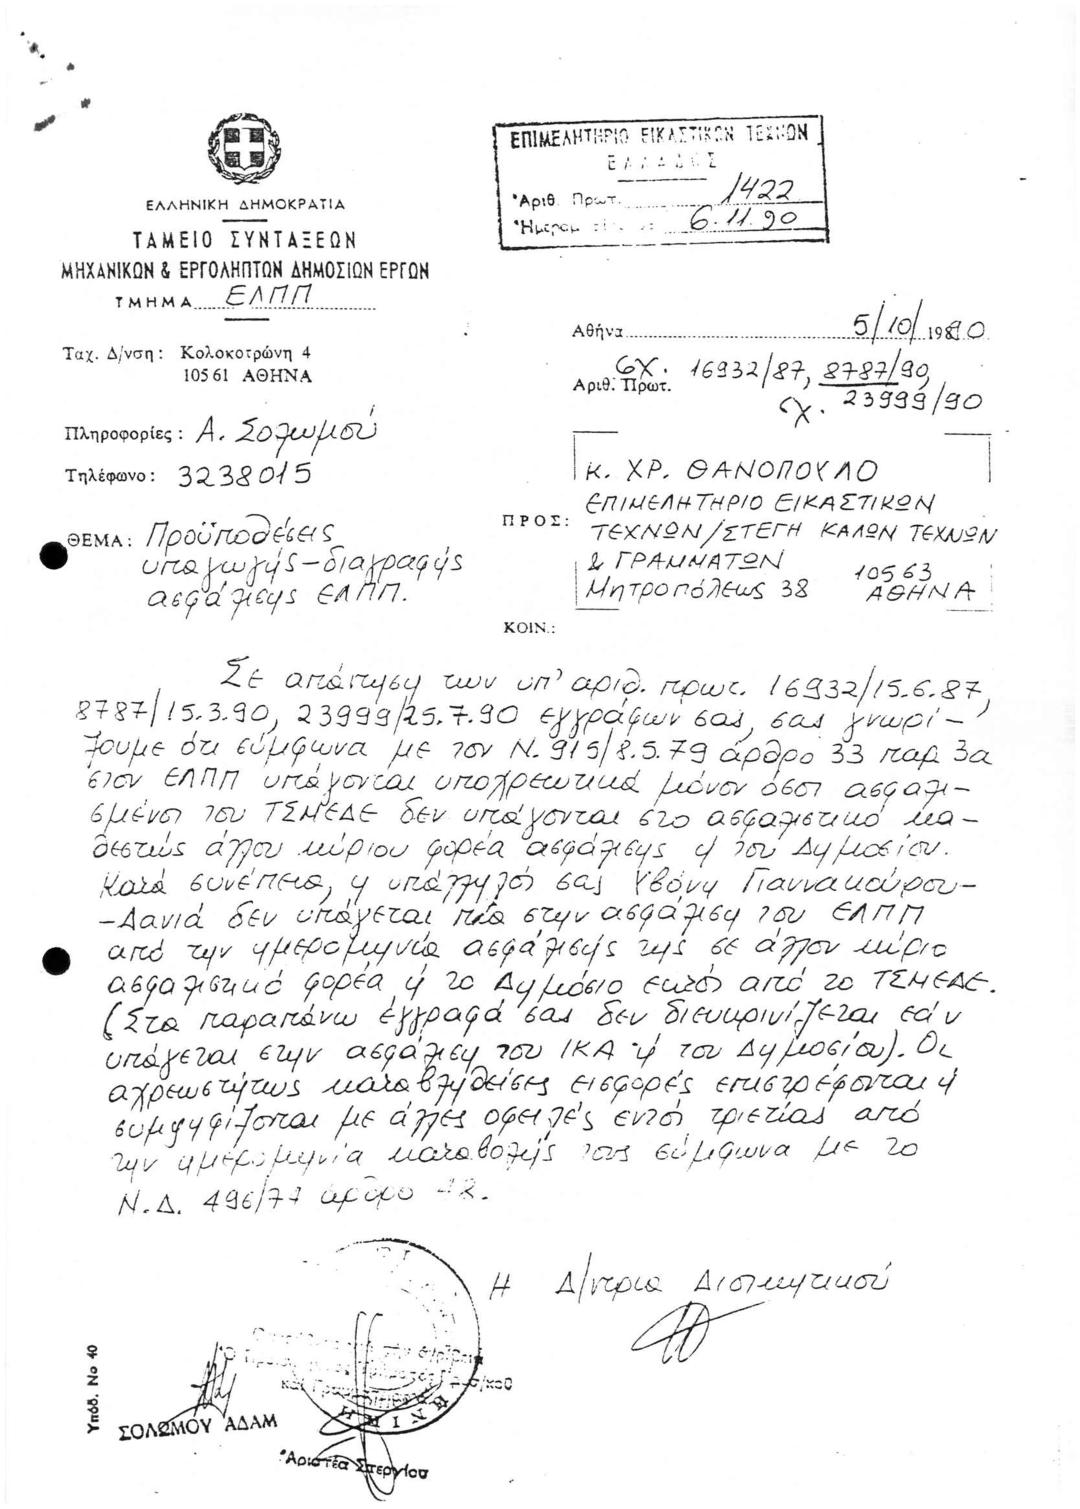 ΕΠΙΜΕΛΗΤΗΡΙΟ ΕΙΚΑΣΤΙΚΩΝ ΤΕΧΝΩΝ
ΕΛΛΑΔΟΣ
Ἀριθ. Πρωτ. 1422
6.11.90
ΕΛΛΗΝΙΚΗ ΔΗΜΟΚΡΑΤΙΑ
ΤΑΜΕΙΟ ΣΥΝΤΑΞΕΩΝ
ΜΗΧΑΝΙΚΩΝ & ΕΡΓΟΛΗΠΤΩΝ ΔΗΜΟΣΙΩΝ ΕΡΓΩΝ
ΤΜΗΜΑ ΕΛΠΠ
Ταχ. Δ/νση: Κολοκοτρώνη 4
105 61 ΑΘΗΝΑ
Πληροφορίες: Α. Σολωμού
Τηλέφωνο: 3238015
Αθήνα 5/10/1990
Αριθ. Πρωτ. σχ. 16932/87, 8787/90,
σχ. 23999/90
ΘΕΜΑ: Προϋποθέσεις
υπαγωγής-διαγραφής
ασφάλισης ΕΛΠΠ.
ΠΡΟΣ:
κ. ΧΡ. ΘΑΝΟΠΟΥΛΟ
ΕΠΙΜΕΛΗΤΗΡΙΟ ΕΙΚΑΣΤΙΚΩΝ
ΤΕΧΝΩΝ/ΣΤΕΓΗ ΚΑΛΩΝ ΤΕΧΝΩΝ
& ΓΡΑΜΜΑΤΩΝ
Μητροπόλεως 38 10563 ΑΘΗΝΑ
ΚΟΙΝ.:
Σε απάντηση των υπ' αριθ. πρωτ. 16932/15.6.87,
8787/15.3.90, 23999/25.7.90 εγγράφων σας, σας γνωρί-
ζουμε ότι σύμφωνα με τον Ν. 915/8.5.79 άρθρο 33 παρ. 3α
στον ΕΛΠΠ υπάγονται υποχρεωτικά μόνον όσοι ασφαλι-
σμένοι του ΤΣΜΕΔΕ δεν υπάγονται στο ασφαλιστικό κα-
θεστώς άλλου κύριου φορέα ασφάλισης ή του Δημοσίου.
Κατά συνέπεια, η υπάλληλός σας Υβόνη Γιαννακούρου-
-Δανιά δεν υπάγεται πια στην ασφάλιση του ΕΛΠΠ
από την ημερομηνία ασφάλισής της σε άλλον κύριο
ασφαλιστικό φορέα ή το Δημόσιο εκτός από το ΤΣΜΕΔΕ.
(Στα παραπάνω έγγραφά σας δεν διευκρινίζεται εάν
υπάγεται στην ασφάλιση του ΙΚΑ ή του Δημοσίου). Οι
αχρεωστήτως καταβληθείσες εισφορές επιστρέφονται ή
συμψηφίζονται με άλλες οφειλές εντός τριετίας από
την ημερομηνία καταβολής τους σύμφωνα με το
Ν.Δ. 496/74 άρθρο
Η Δ/ντρια Διοικητικού
ΣΟΛΩΜΟΥ ΑΔΑΜ
Ἀριστέα Στεργίου
Υπόδ. Νο 40